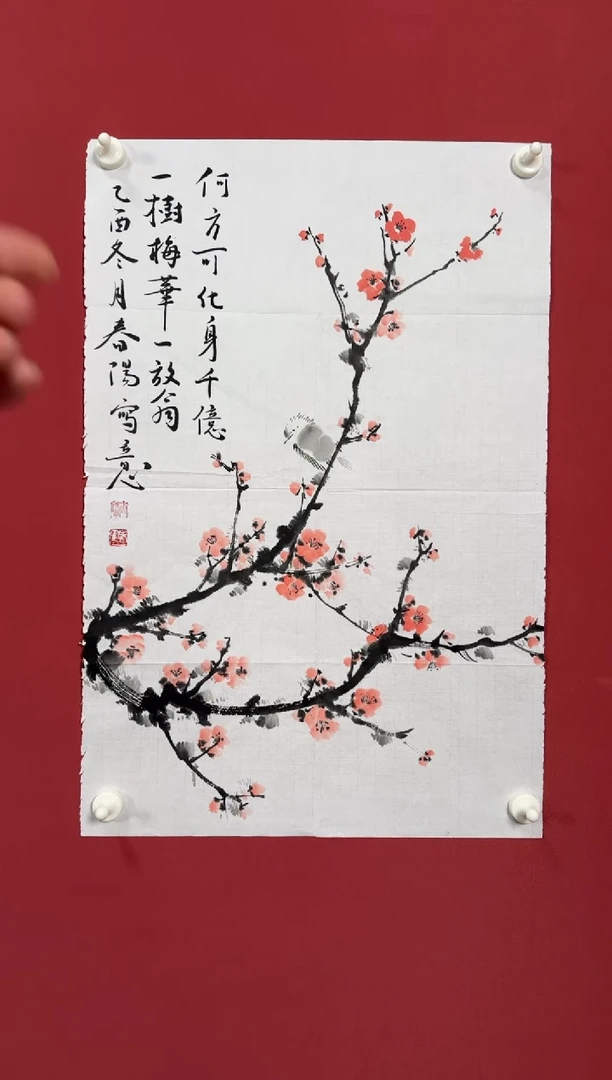 何方可化身千億
一樹梅華一放翁
乙酉冬月春陽寫意